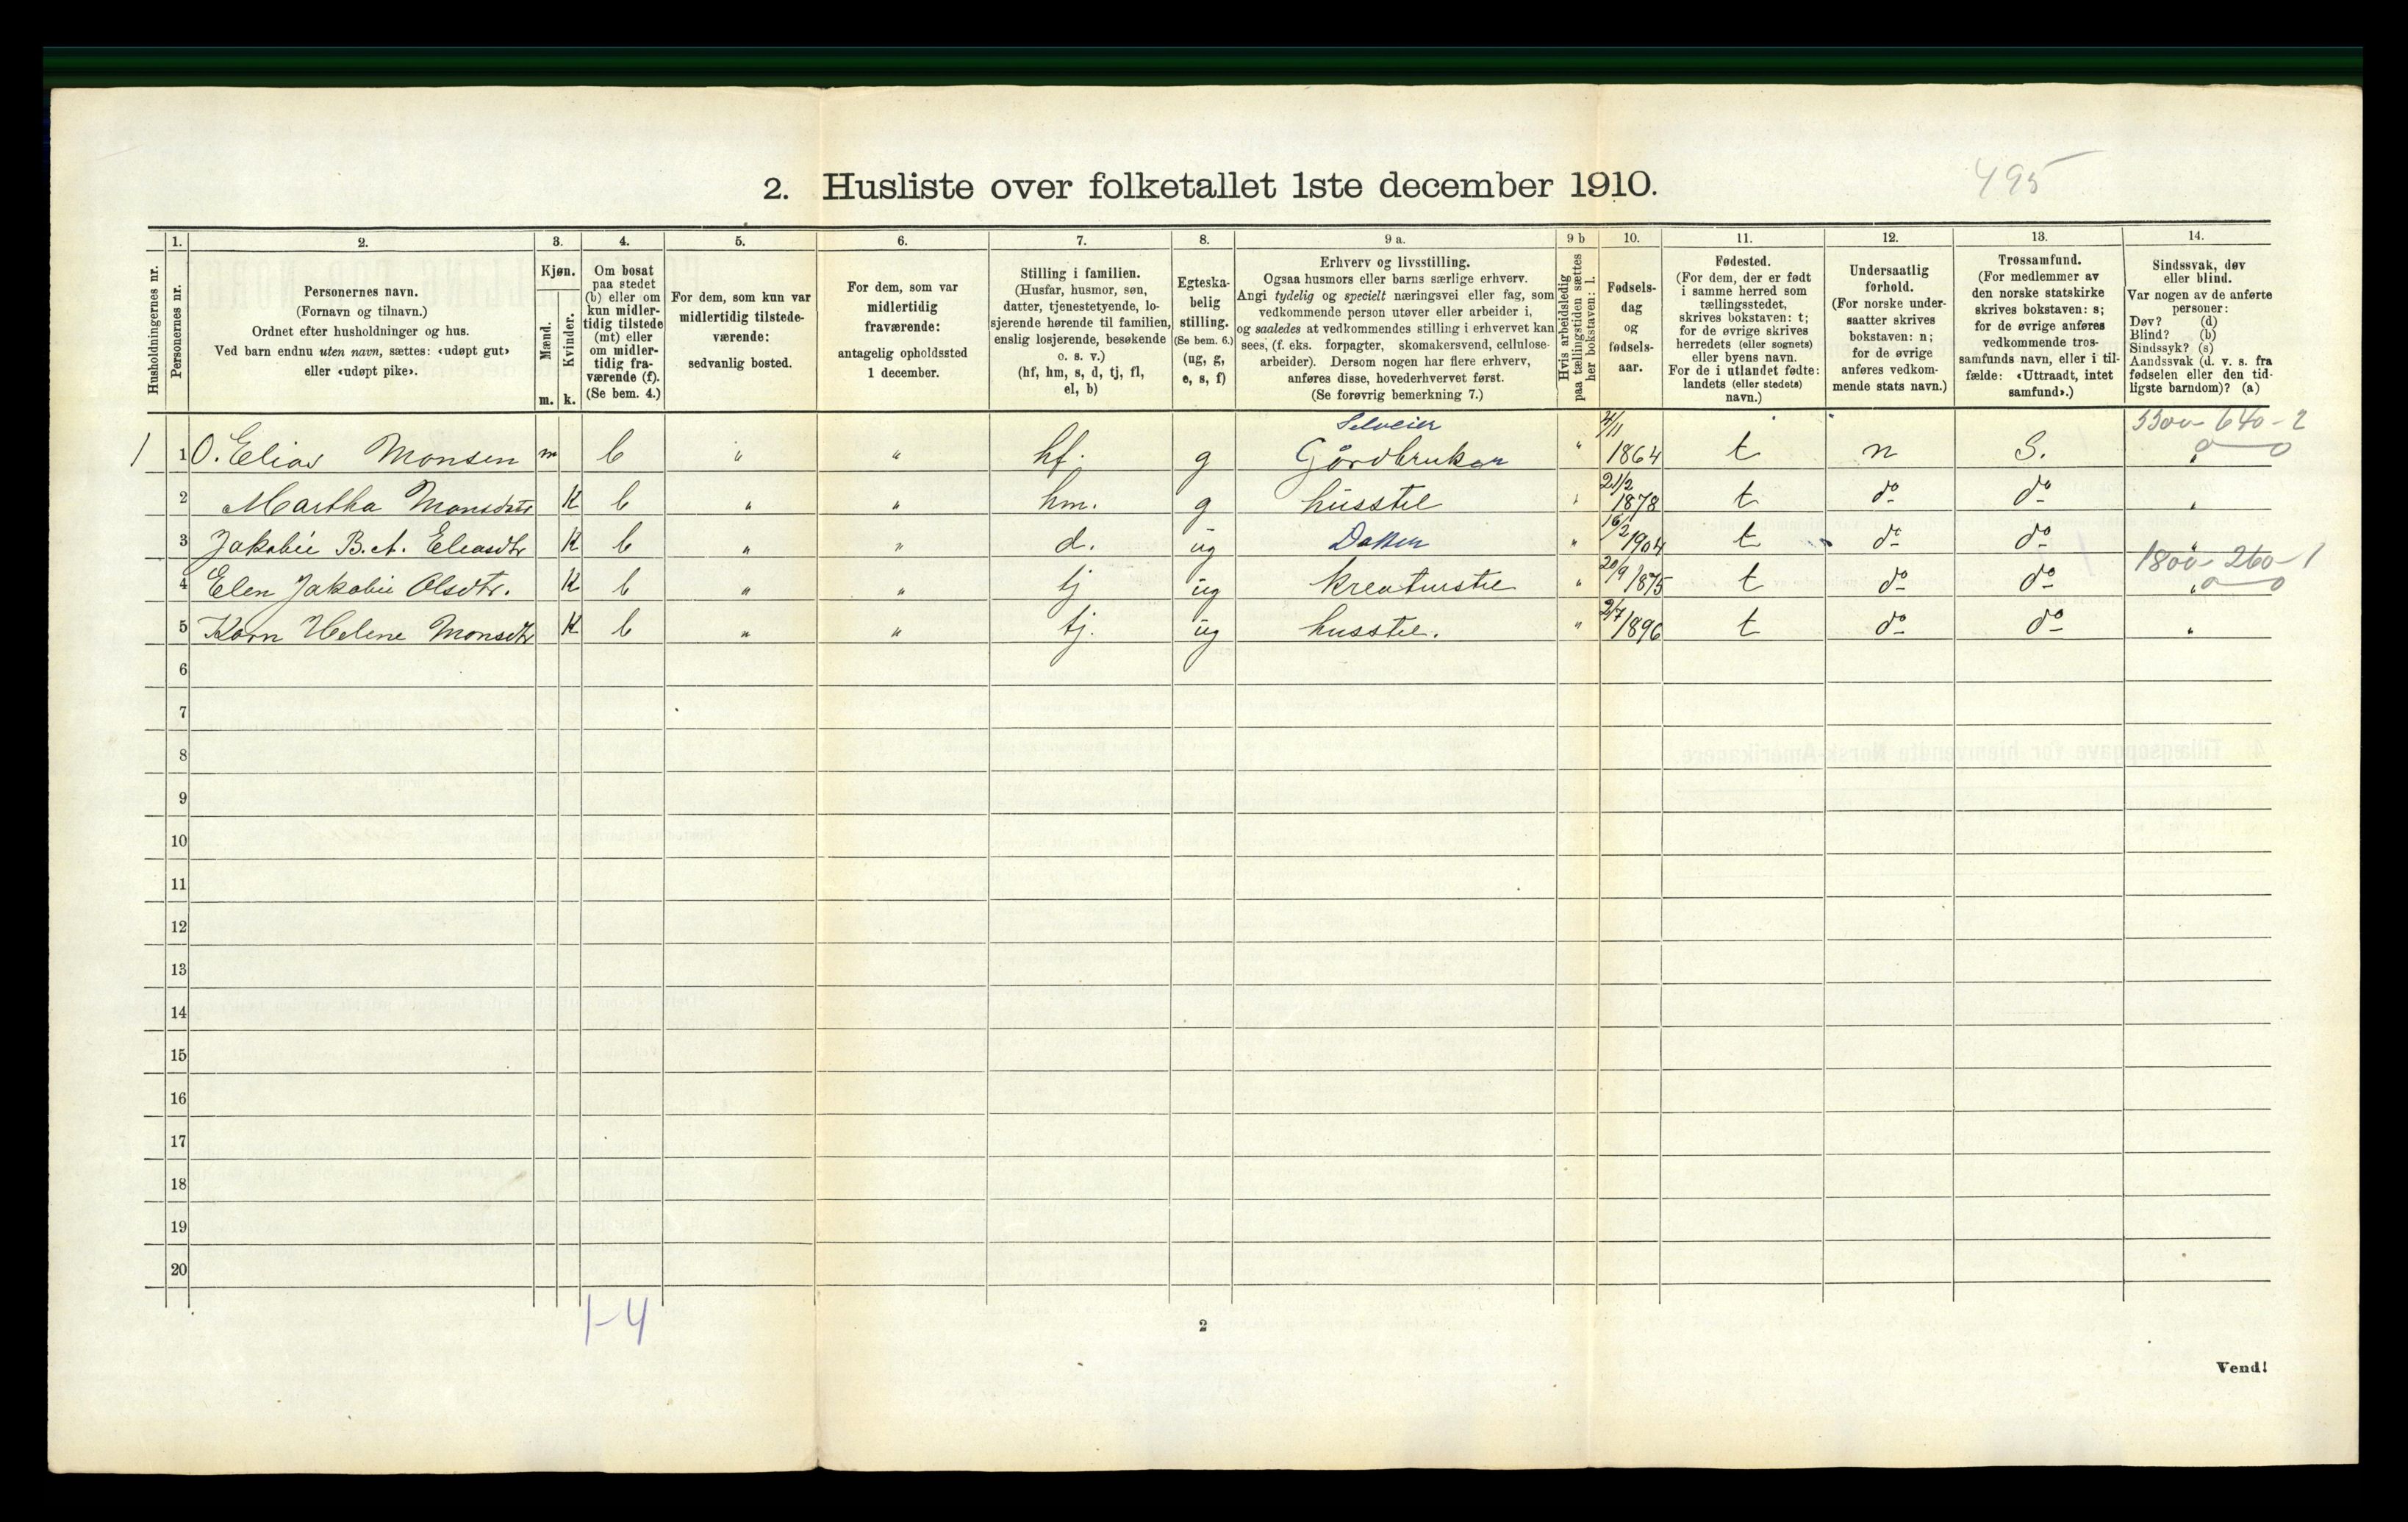 2. Husliste over folketallet 1ste december 1910.
495
1. 2. 3. 4. 5. 6. 7. 8. 9 a. 9 b 10. 11. 12. 13. 14.
Husholdningernes nr.
Personernes nr.
Personernes navn.
(Fornavn og tilnavn.)
Ordnet efter husholdninger og hus.
Ved barn endnu uten navn, sættes: «udøpt gut»
eller «udøpt pike».
Kjøn.
Mænd.
Kvinder.
m. k.
Om bosat
paa stedet
(b) eller om
kun midler-
tidig tilstede
(mt) eller
om midler-
tidig fra-
værende (f).
(Se bem. 4.)
For dem, som kun var
midlertidig tilstede-
værende:
sedvanlig bosted.
For dem, som var
midlertidig
fraværende:
antagelig opholdssted
1 december.
Stilling i familien.
(Husfar, husmor, søn,
datter, tjenestetyende, lo-
sjerende hørende til familien,
enslig losjerende, besøkende
o. s. v.)
(hf, hm, s, d, tj, fl,
el, b)
Egteska-
belig
stilling.
(Se bem. 6.)
(ug, g,
e, s, f)
Erhverv og livsstilling.
Ogsaa husmors eller barns særlige erhverv.
Angi tydelig og specielt næringsvei eller fag, som
vedkommende person utøver eller arbeider i,
og saaledes at vedkommendes stilling i erhvervet kan
sees, (f. eks. forpagter, skomakersvend, cellulose-
arbeider). Dersom nogen har flere erhverv,
anføres disse, hovederhvervet først.
(Se forøvrig bemerkning 7.)
Hvis arbeidsledig
paa tællingstiden sættes
her bokstaven: l.
Fødsels-
dag
og
fødsels-
aar.
Fødested.
(For dem, der er født
i samme herred som
tællingsstedet,
skrives bokstaven: t;
for de øvrige skrives
herredets (eller sognets)
eller byens navn.
For de i utlandet fødte:
landets (eller stedets)
navn.)
Undersaatlig
forhold.
(For norske under-
saatter skrives
bokstaven: n;
for de øvrige
anføres vedkom-
mende stats navn.)
Trossamfund.
(For medlemmer av
den norske statskirke
skrives bokstaven: s;
for de øvrige anføres
vedkommende tros-
samfunds navn, eller i til-
fælde: «Uttraadt, intet
samfund».)
Sindssvak, døv
eller blind.
Var nogen av de anførte
personer:
Døv? (d)
Blind? (b)
Sindssyk? (s)
Aandssvak (d. v. s. fra
fødselen eller den tid-
ligste barndom)? (a)
Selveier 4/11 5300 - 640 - 2
1 1 O. Elias Monsen m b " " hf. g Gårdbruker " 1864 t n S. "
2 Martha Monsdatr K b " " hm. g husstel " 21/2 1878 t do do "
3 Jakobie B. A. Eliasdtr K b " " d. ug Datter " 16/2 1904 t do do "
1800 - 260 - 1
4 Elen Jakobie Olsdtr. K b " " tj ug kreaturstel " 20/9 1875 t do do "
5 Karn Helene Monsdtr K b " " tj. ug husstel. " 2/7 1896 t do do "
6
7
8
9
10
11
12
13
14
15
16
17
18
19
20
1-4
2
Vend!